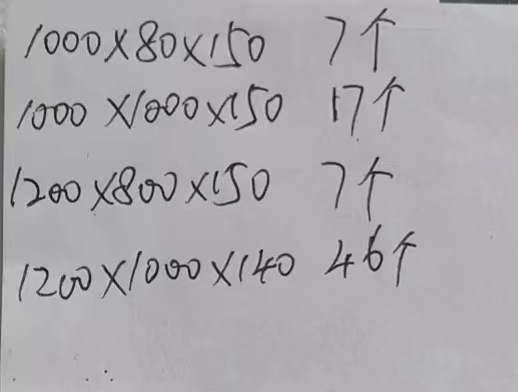 1000×80×150 7个
1000×1000×150 17个
1200×800×150 7个
1200×1000×140 46个